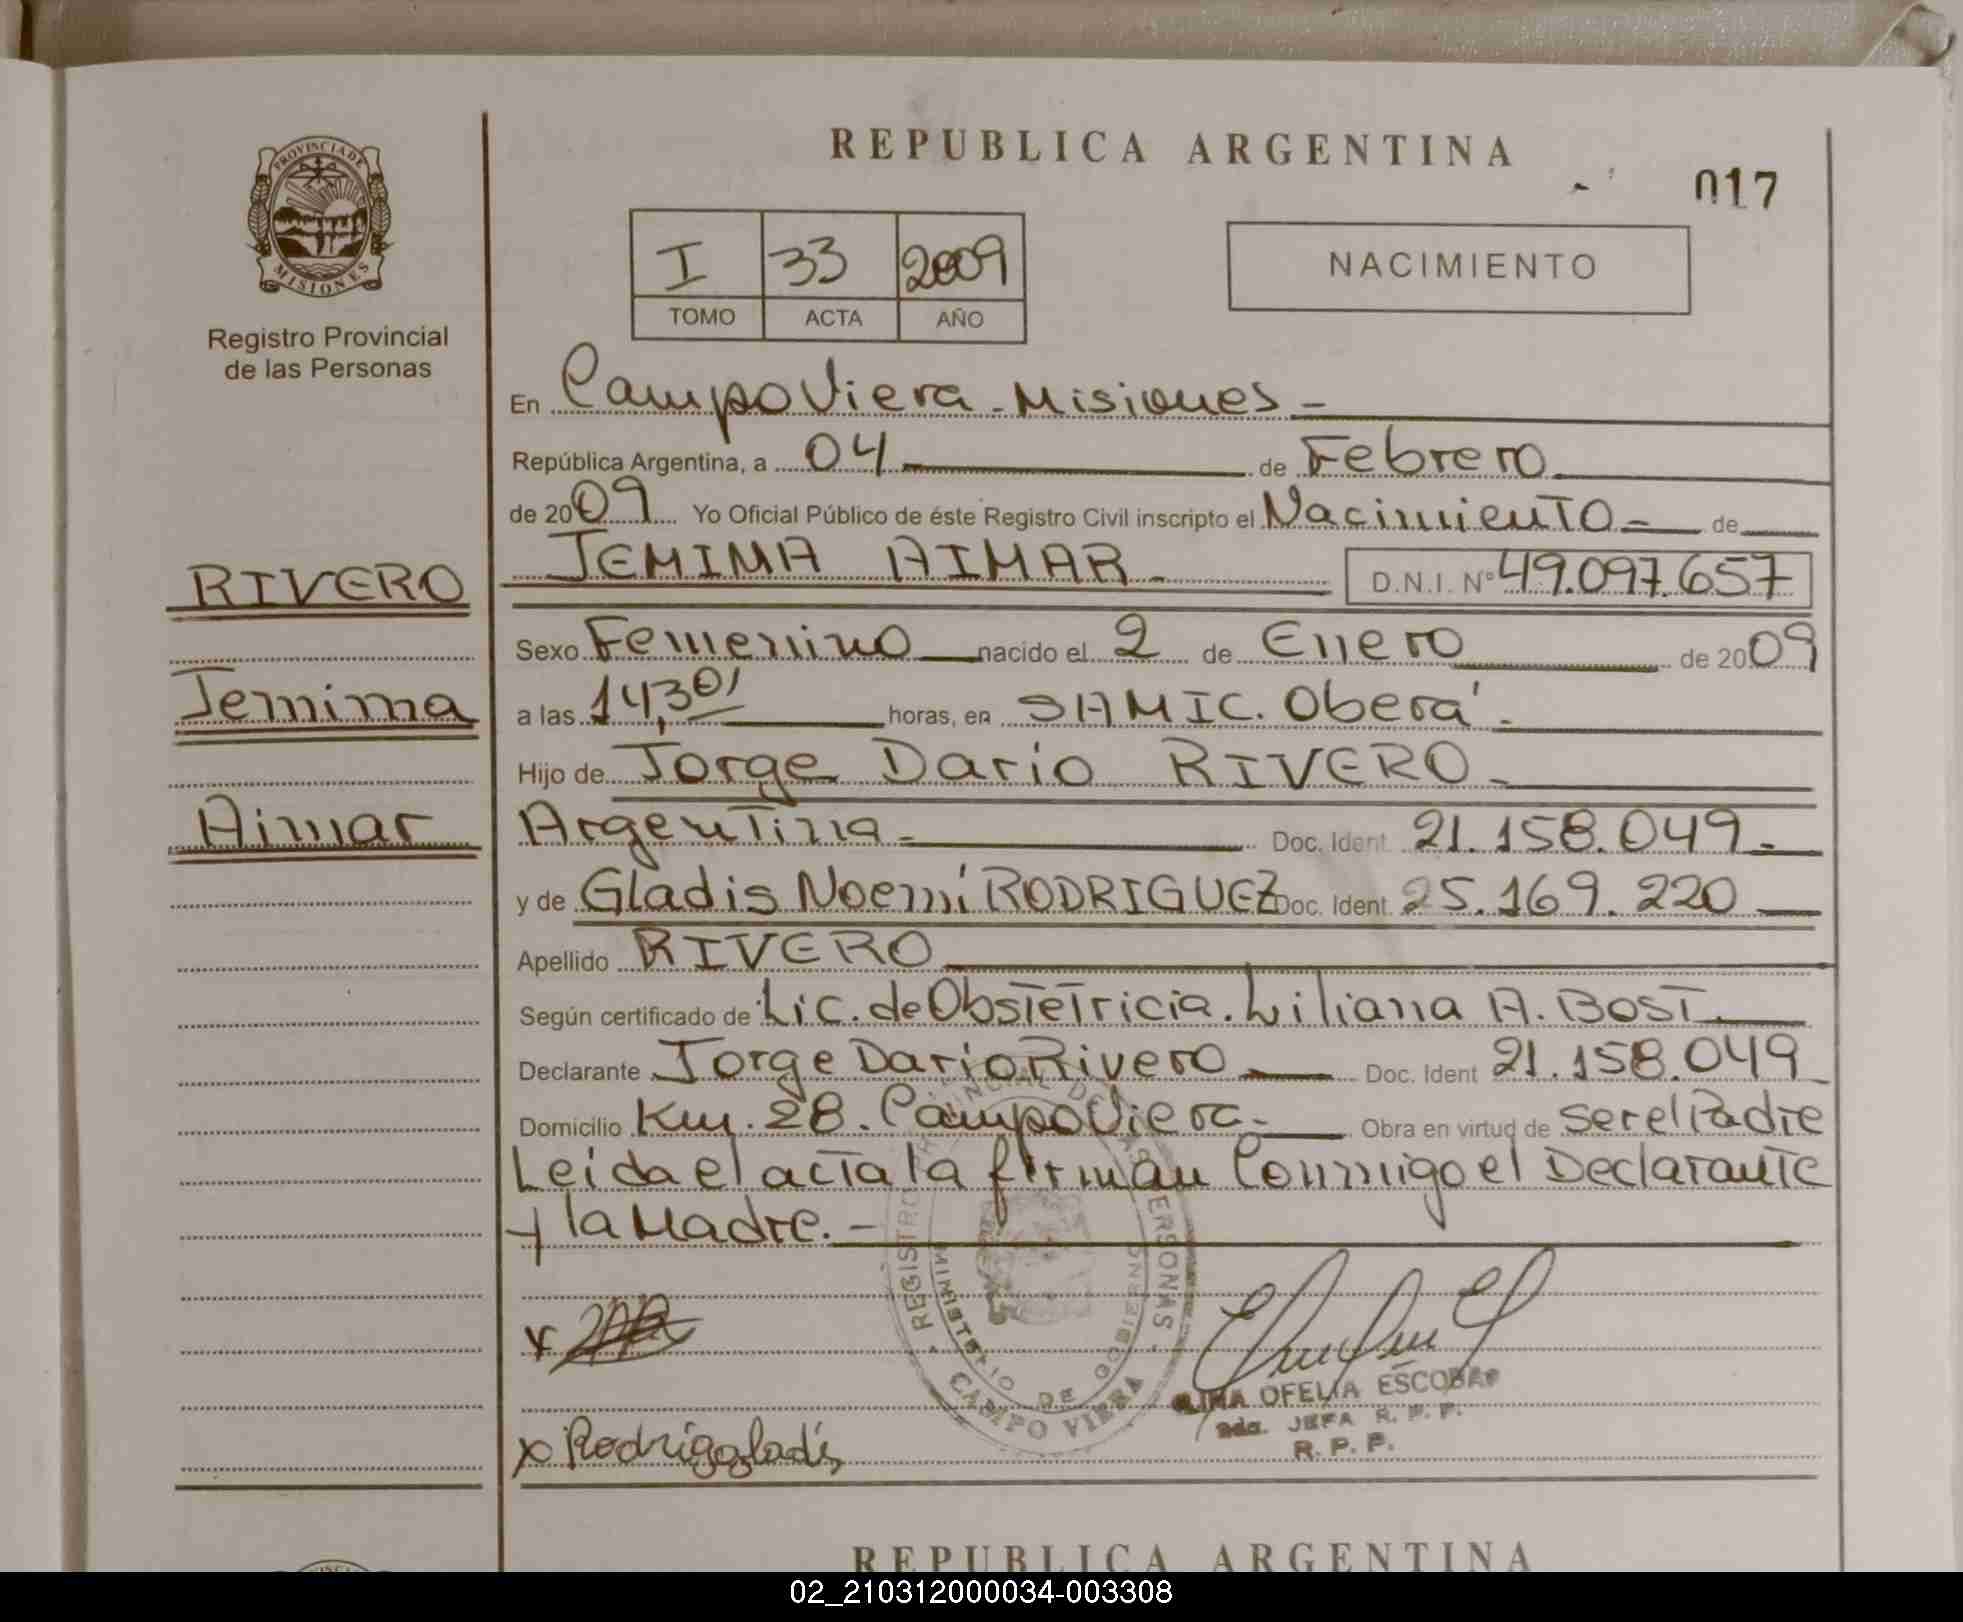 REPUBLICA ARGENTINA
017
PROVINCIA DE MISIONES
Registro Provincial
de las Personas
I 33 2009
TOMO ACTA AÑO
NACIMIENTO
En Campo Viera - Misiones -
República Argentina, a 04 de Febrero
de 2009 Yo Oficial Público de éste Registro Civil inscripto el Nacimiento - de
JEMIMA AIMAR - D.N.I. Nº 49.097.657
RIVERO
Jemima
Aimar
Sexo Femenino nacido el 2 de Enero de 2009
a las 14,30' horas, en SAMIC. Oberá -
Hijo de Jorge Dario RIVERO -
Argentina - Doc. Ident. 21.158.049 -
y de Gladis Noemí RODRIGUEZ Doc. Ident. 25.169.220
Apellido RIVERO
Según certificado de Lic. de Obstetricia. Liliana A. Bost
Declarante Jorge Dario Rivero Doc. Ident 21.158.049
Domicilio Km. 28. Campo Viera - Obra en virtud de ser el Padre
Leida el acta la firman Conmigo el Declarante
y la Madre. -
x
x Rodrigo gladis
REGISTRO PROVINCIAL DE LAS PERSONAS
MINISTERIO DE GOBIERNO
CAMPO VIERA
OFELIA ESCOBAR
2da. JEFA R. P. P.
R. P. P.
REPUBLICA ARGENTINA
02_210312000034-003308